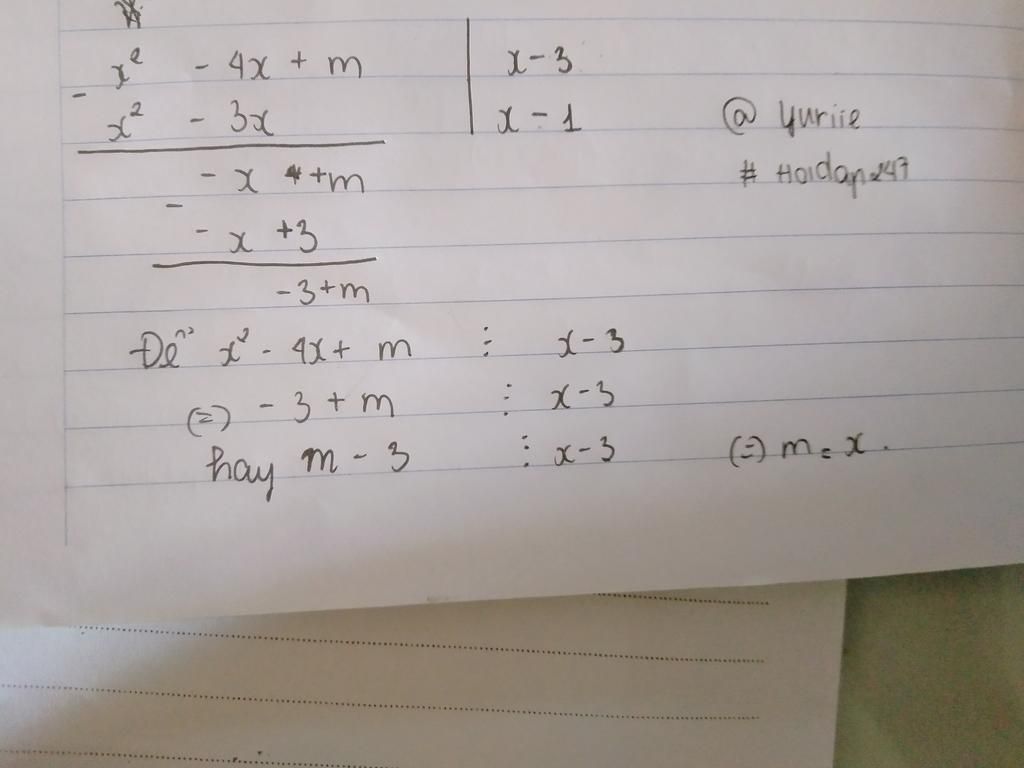 x² - 4x + m | x - 3
- x² - 3x | x - 1 @ Yuriie
- x + m # Hoidap247
- - x + 3
- 3 + m
Để x² - 4x + m ⋮ x - 3
(=) - 3 + m ⋮ x - 3
hay m - 3 ⋮ x - 3 (=) m = x .